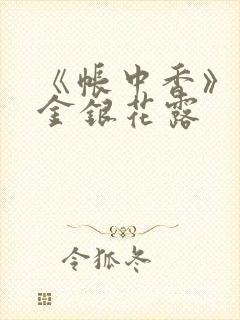 《帐中香》
金银花露
令狐冬